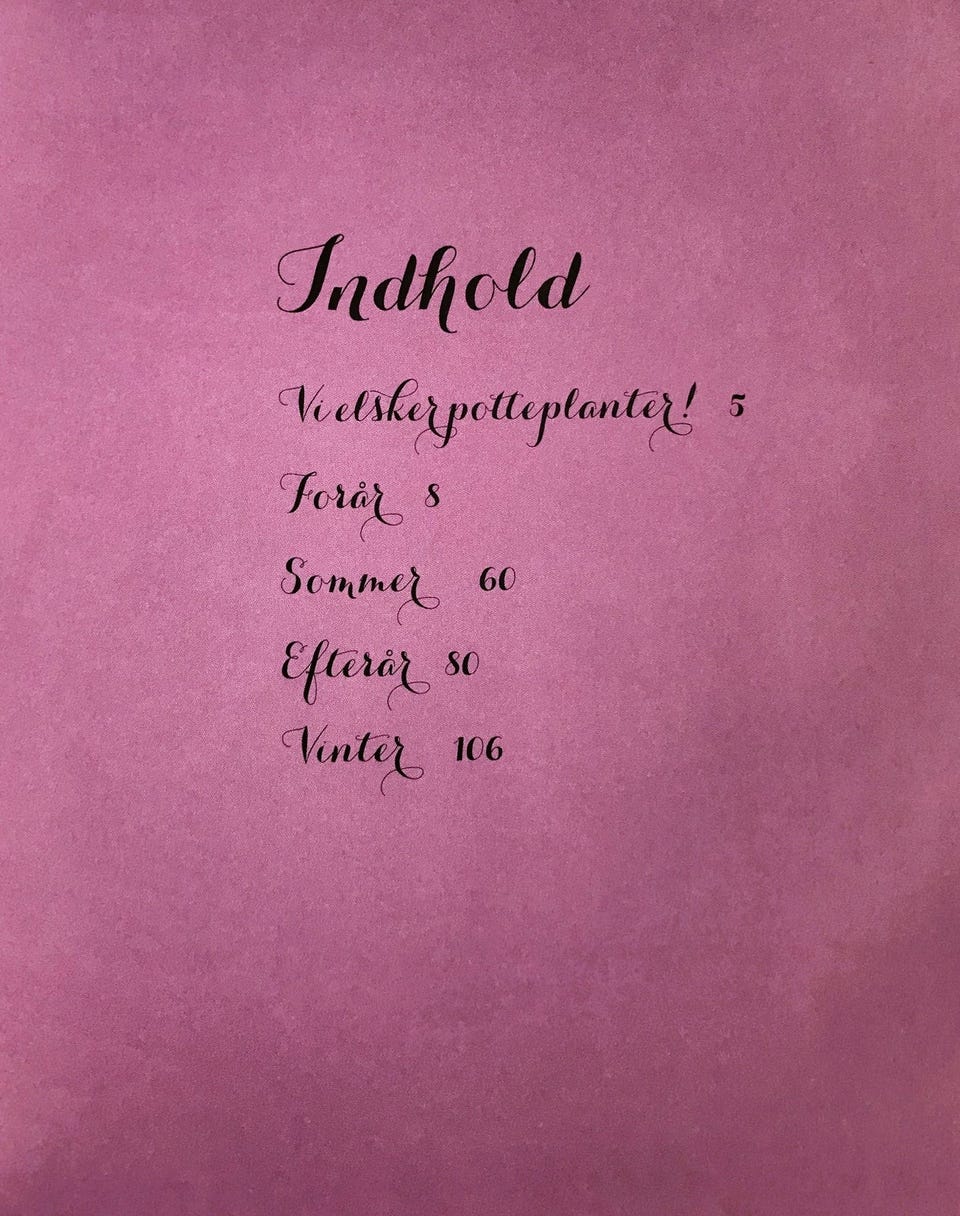 Indhold
Vi elsker potteplanter! 5
Forår 8
Sommer 60
Efterår 80
Vinter 106